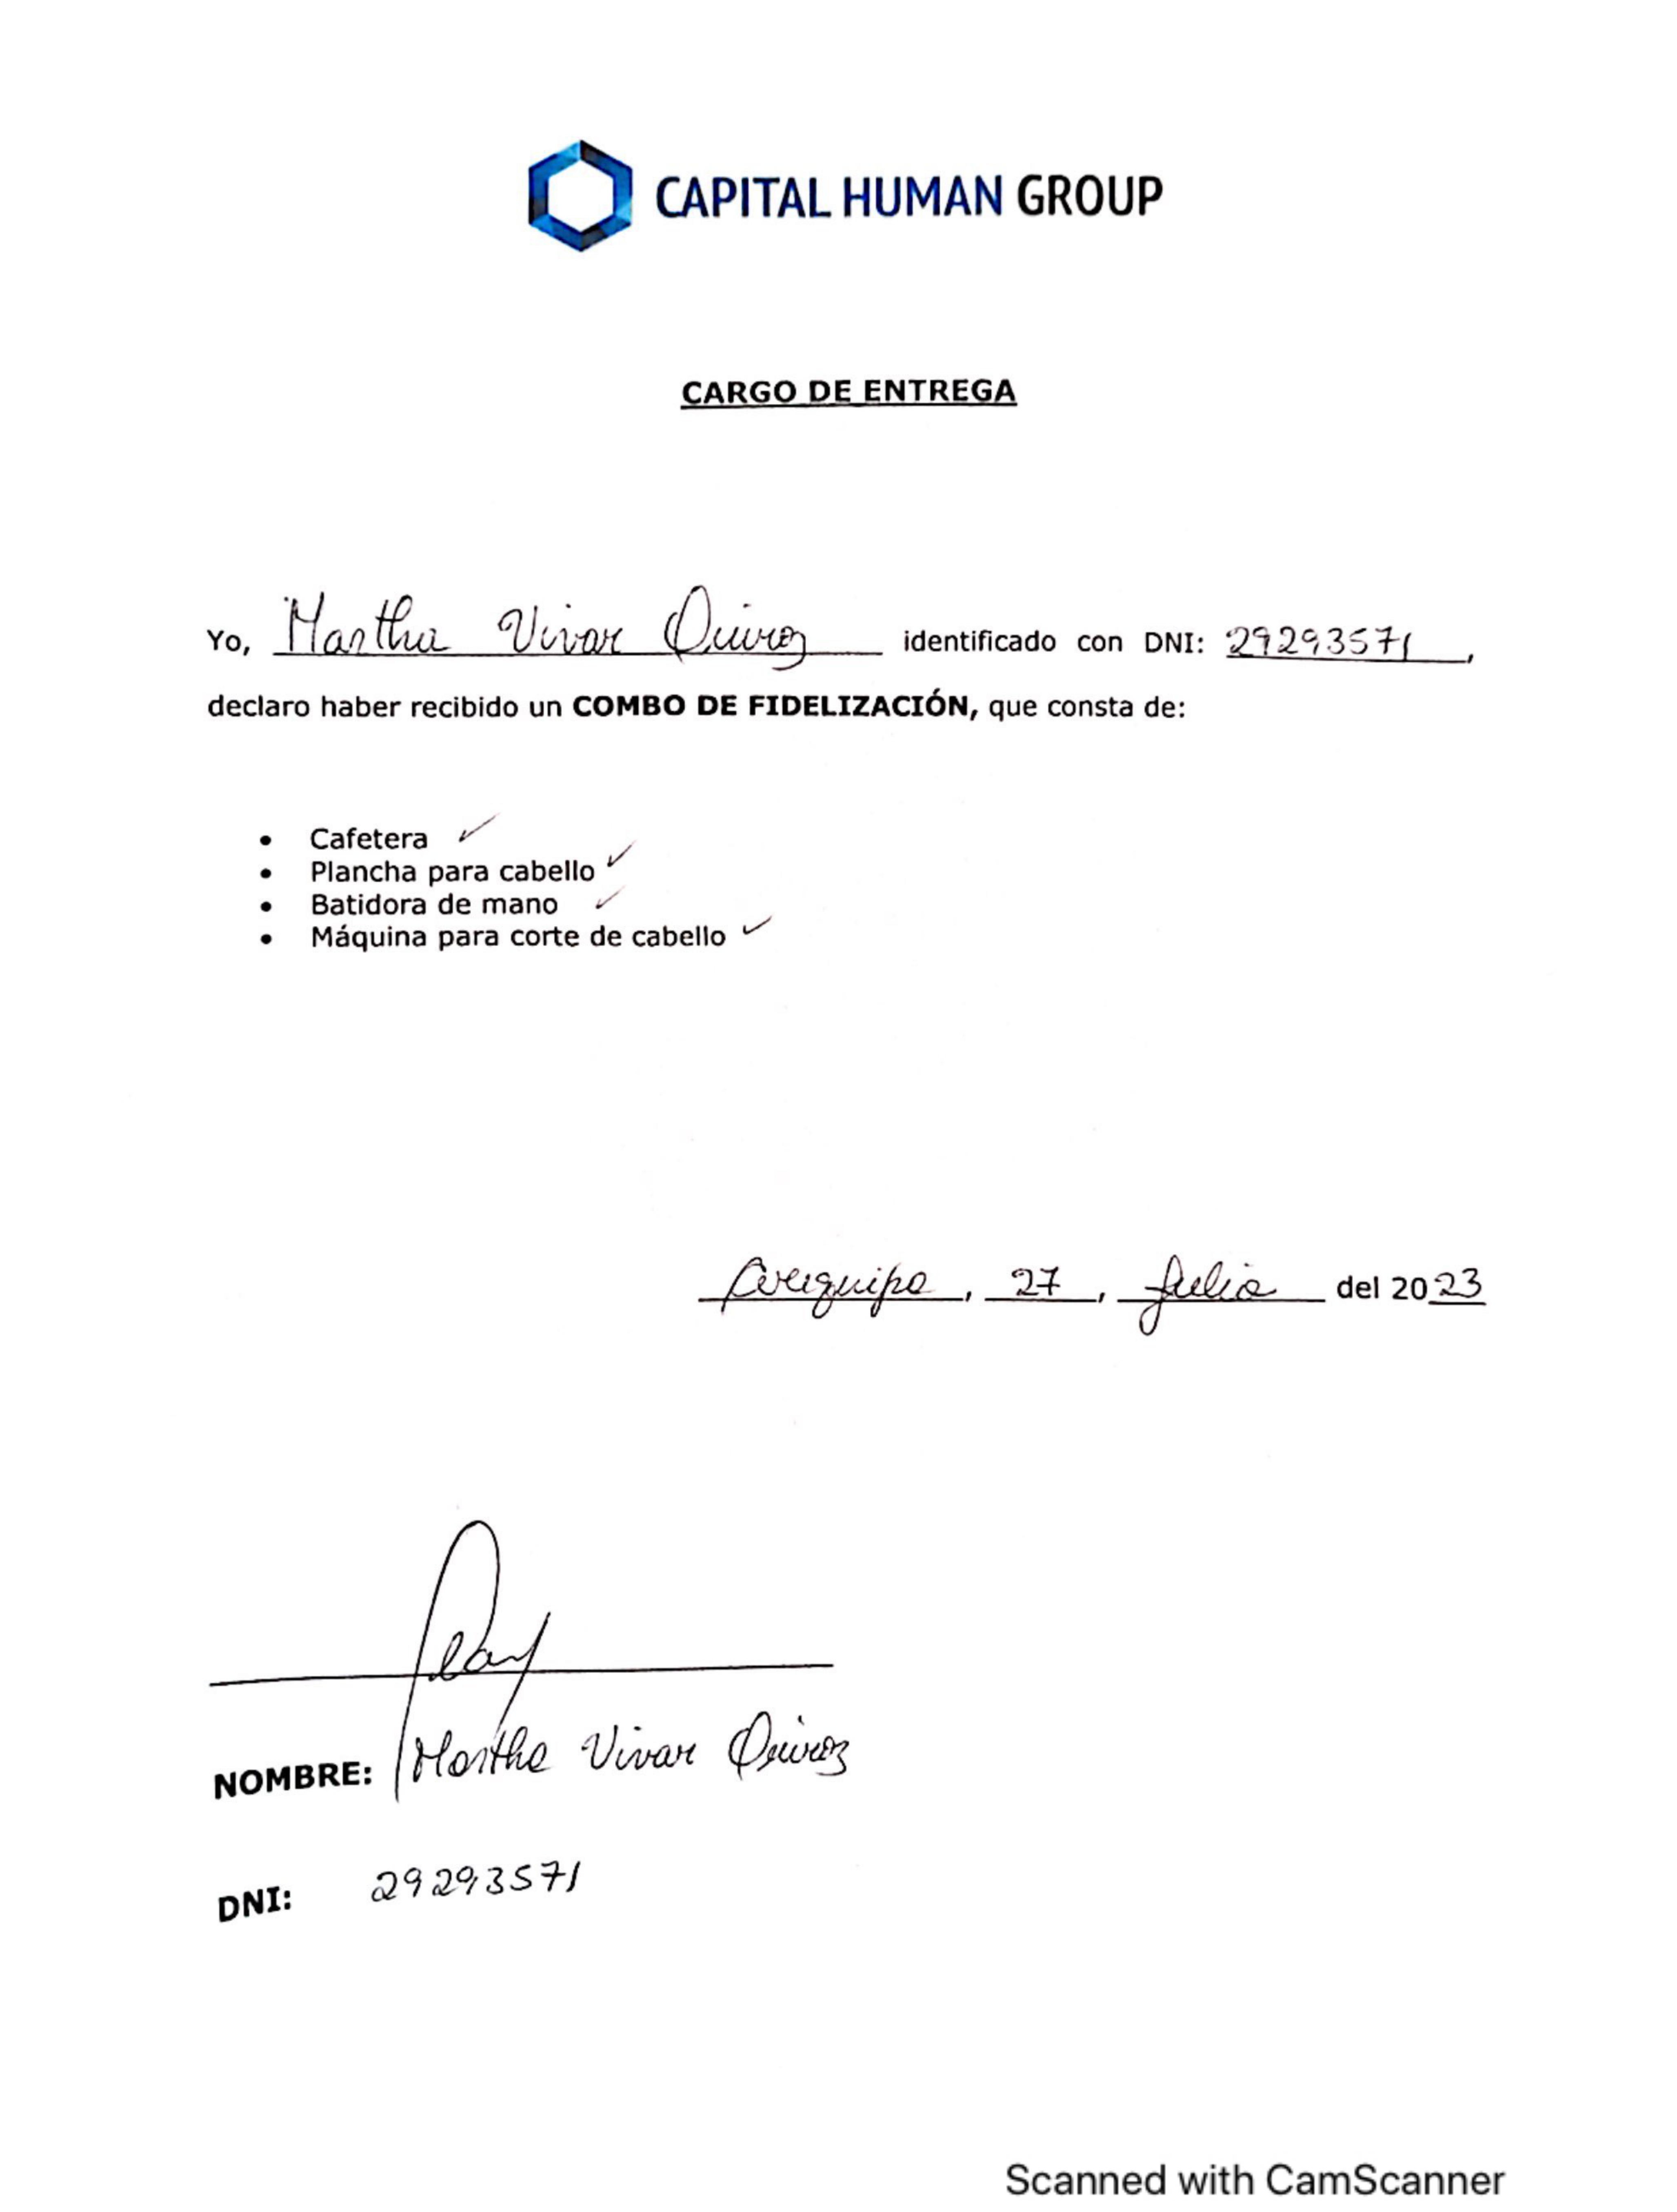 CAPITAL HUMAN GROUP
CARGO DE ENTREGA
Yo, Martha Vivar Quiroz identificado con DNI: 29293571,
declaro haber recibido un COMBO DE FIDELIZACIÓN, que consta de:
• Cafetera ✓
• Plancha para cabello ✓
• Batidora de mano ✓
• Máquina para corte de cabello ✓
Arequipa, 27, Julio del 2023
NOMBRE: Martha Vivar Quiroz
DNI: 29293571
Scanned with CamScanner